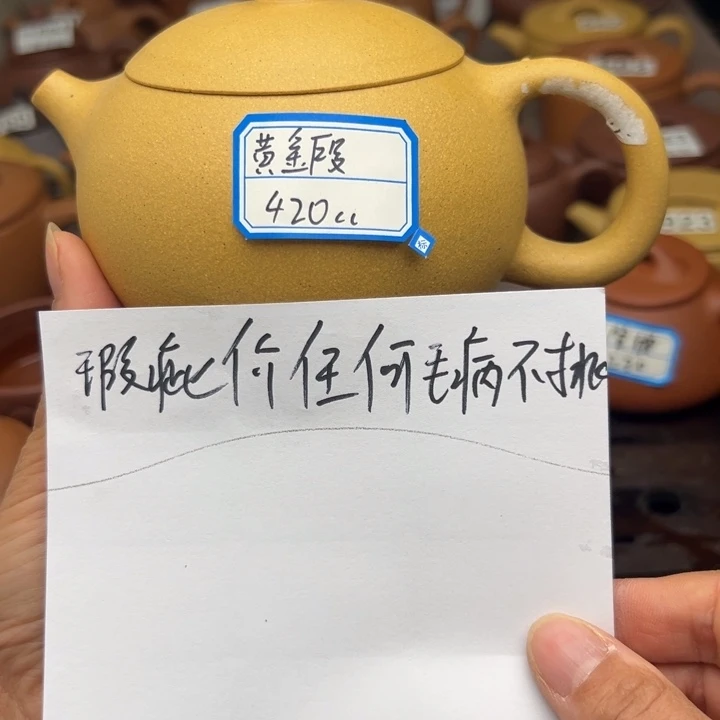 黄金段
420cc
瑕疵价任何毛病不挑